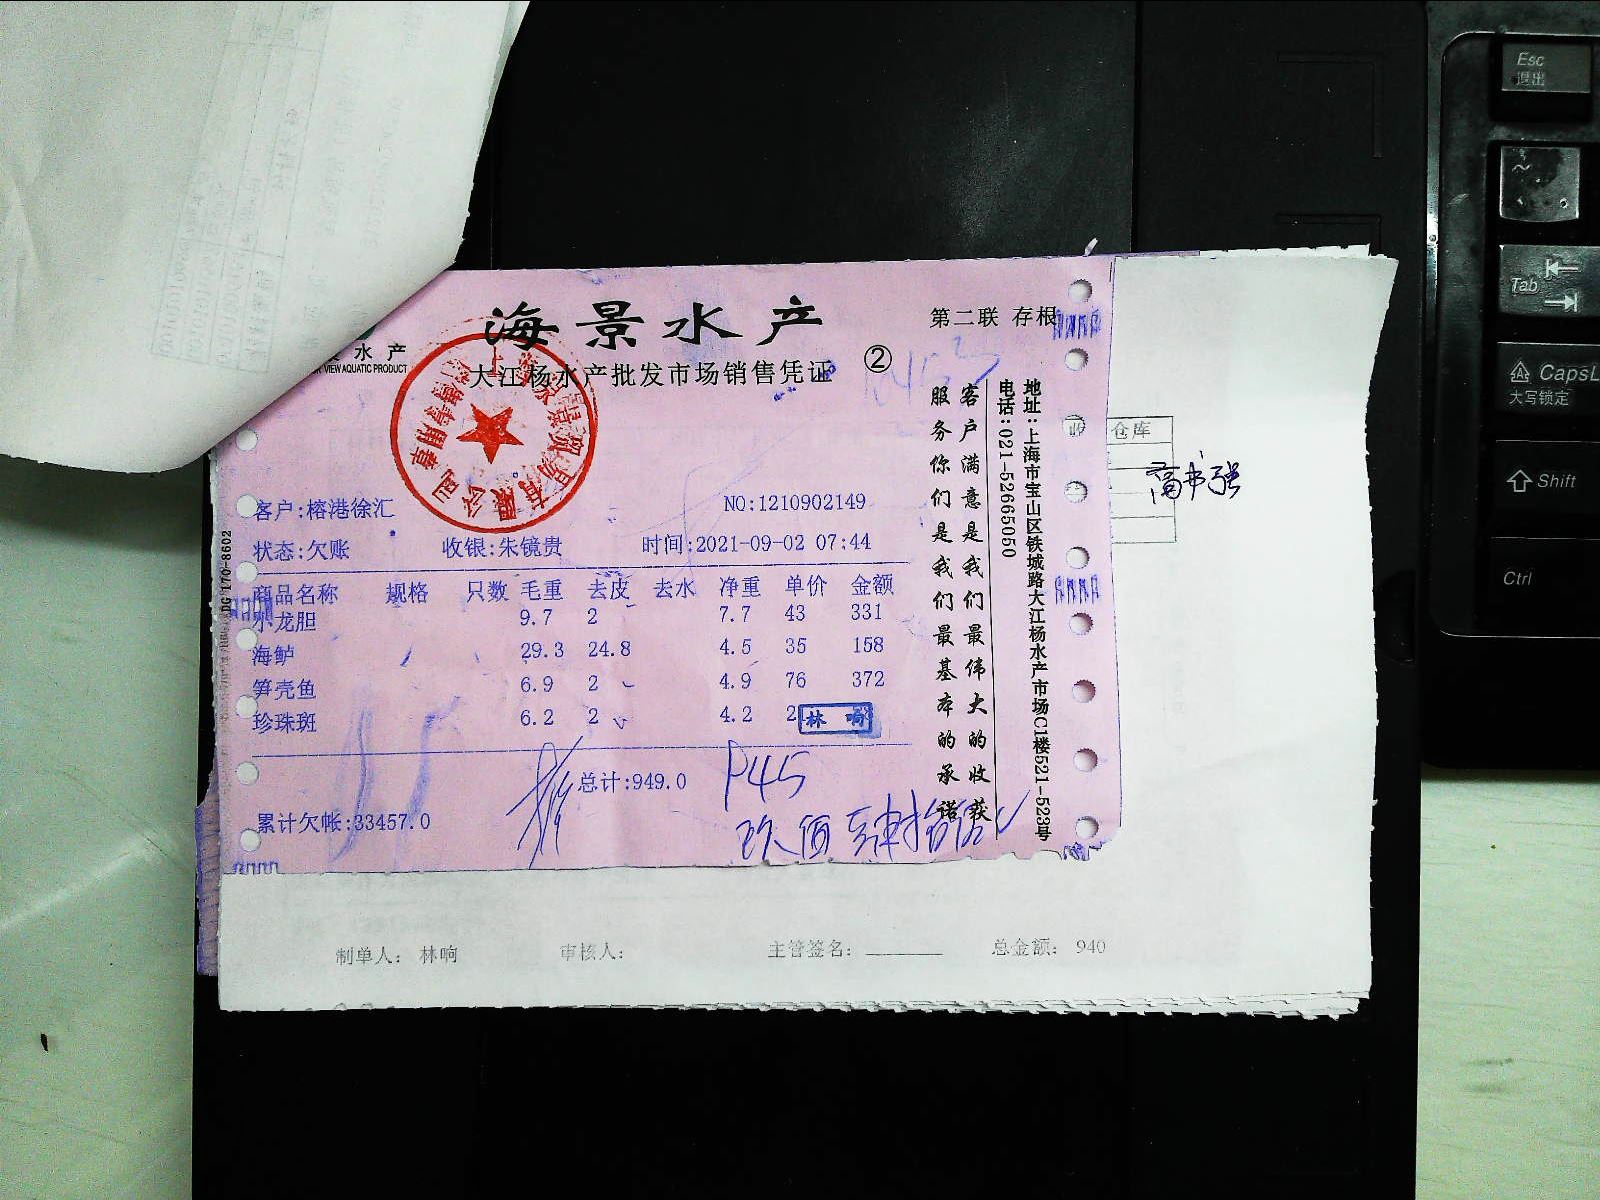 海景水产
水产
VIEW AQUATIC PRODUCT
大江杨水产批发市场销售凭证 ②
第二联 存根
客户:榕港徐汇 NO:1210902149
状态:欠账 收银:朱镜贵 时间:2021-09-02 07:44
商品名称 规格 只数 毛重 去皮 去水 净重 单价 金额
小龙胆 9.7 2 7.7 43 331
海鲈 29.3 24.8 4.5 35 158
笋壳鱼 6.9 2 4.9 76 372
珍珠斑 6.2 2 4.2 2
林响
总计:949.0
累计欠帐:33457.0
P45
客户满意是我们最伟大的收获
服务你们是我们最基本的承诺
地址:上海市宝山区铁城路大江杨水产市场C1楼521-523号
电话:021-52665050
DG 170-8602
仓库
高书强
制单人: 林响 审核人: 主管签名: 总金额: 940
Esc
退出
~
Tab
CapsL
大写锁定
Shift
Ctrl